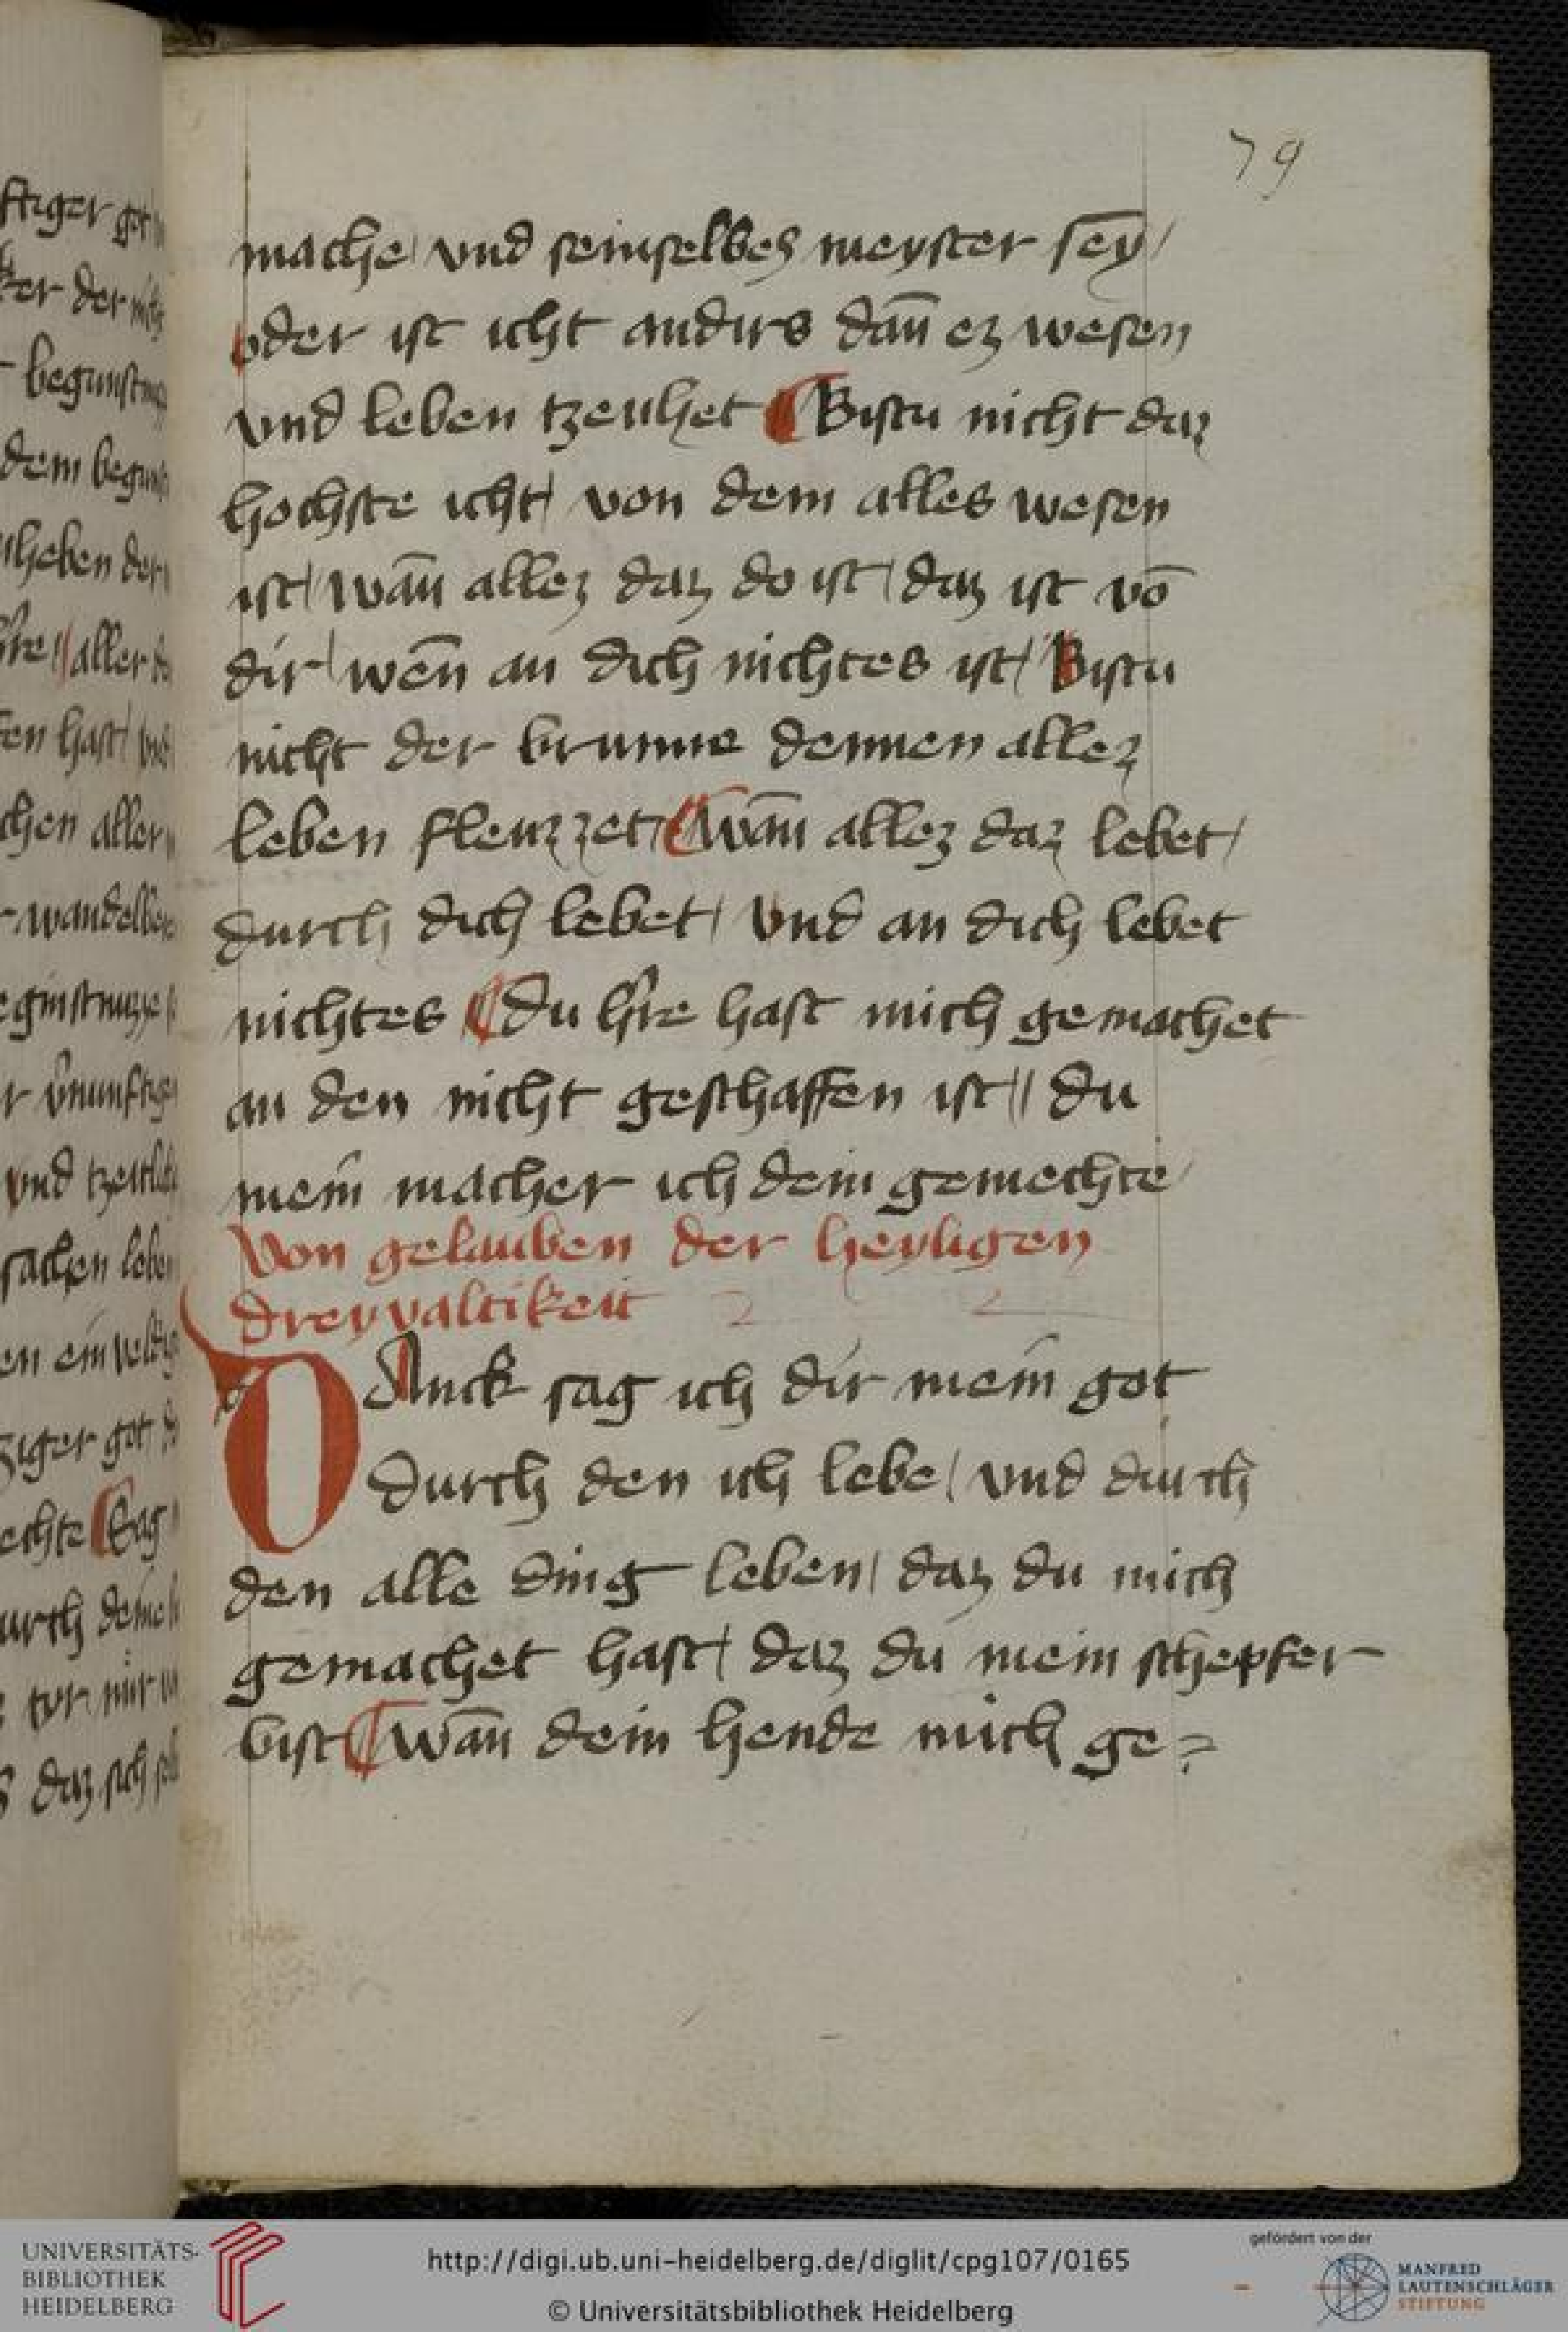 79
mache / vnd seinselbes meyster sey /
oder ist icht andirs dan̄ ez wesen
vnd leben tzeuhet ¶ Bistu nicht daz
hochste icht / von dem alles wesen
ist / wan̄ allez daz do ist / daz ist vō
dir / wen̄ an dich nichtes ist / Bistu
nicht der brunne dennen allez
leben fleuzzet ¶ wan̄ allez daz lebet /
durch dich lebet / vnd an dich lebet
nichtes ¶ du hˀre hast mich gemachet
an den nicht geschaffen ist // du
mein macher ich dein gemechte /
Von gelauben der heyligen
dreyvaltikeit
DAnck sag ich dir mein got
durch den ich lebe / vnd durch
den alle ding leben / daz du mich
gemachet hast / daz du mein schepfer
bist ¶ wan̄ dein hende mich ge=
UNIVERSITÄTS-
BIBLIOTHEK
HEIDELBERG
http://digi.ub.uni-heidelberg.de/diglit/cpg107/0165
© Universitätsbibliothek Heidelberg
gefördert von der
MANFRED
LAUTENSCHLÄGER
STIFTUNG